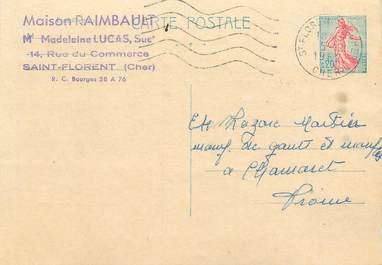 Maison RAIMBAULT
CARTE POSTALE
Mme Madeleine LUCAS, Sucr
14, Rue du Commerce
SAINT-FLORENT (Cher)
R. C. Bourges 58 A 76
ST FLORENT
CHER
Ets Lazare Martin
manuf. de
à Chamaret
Drôme